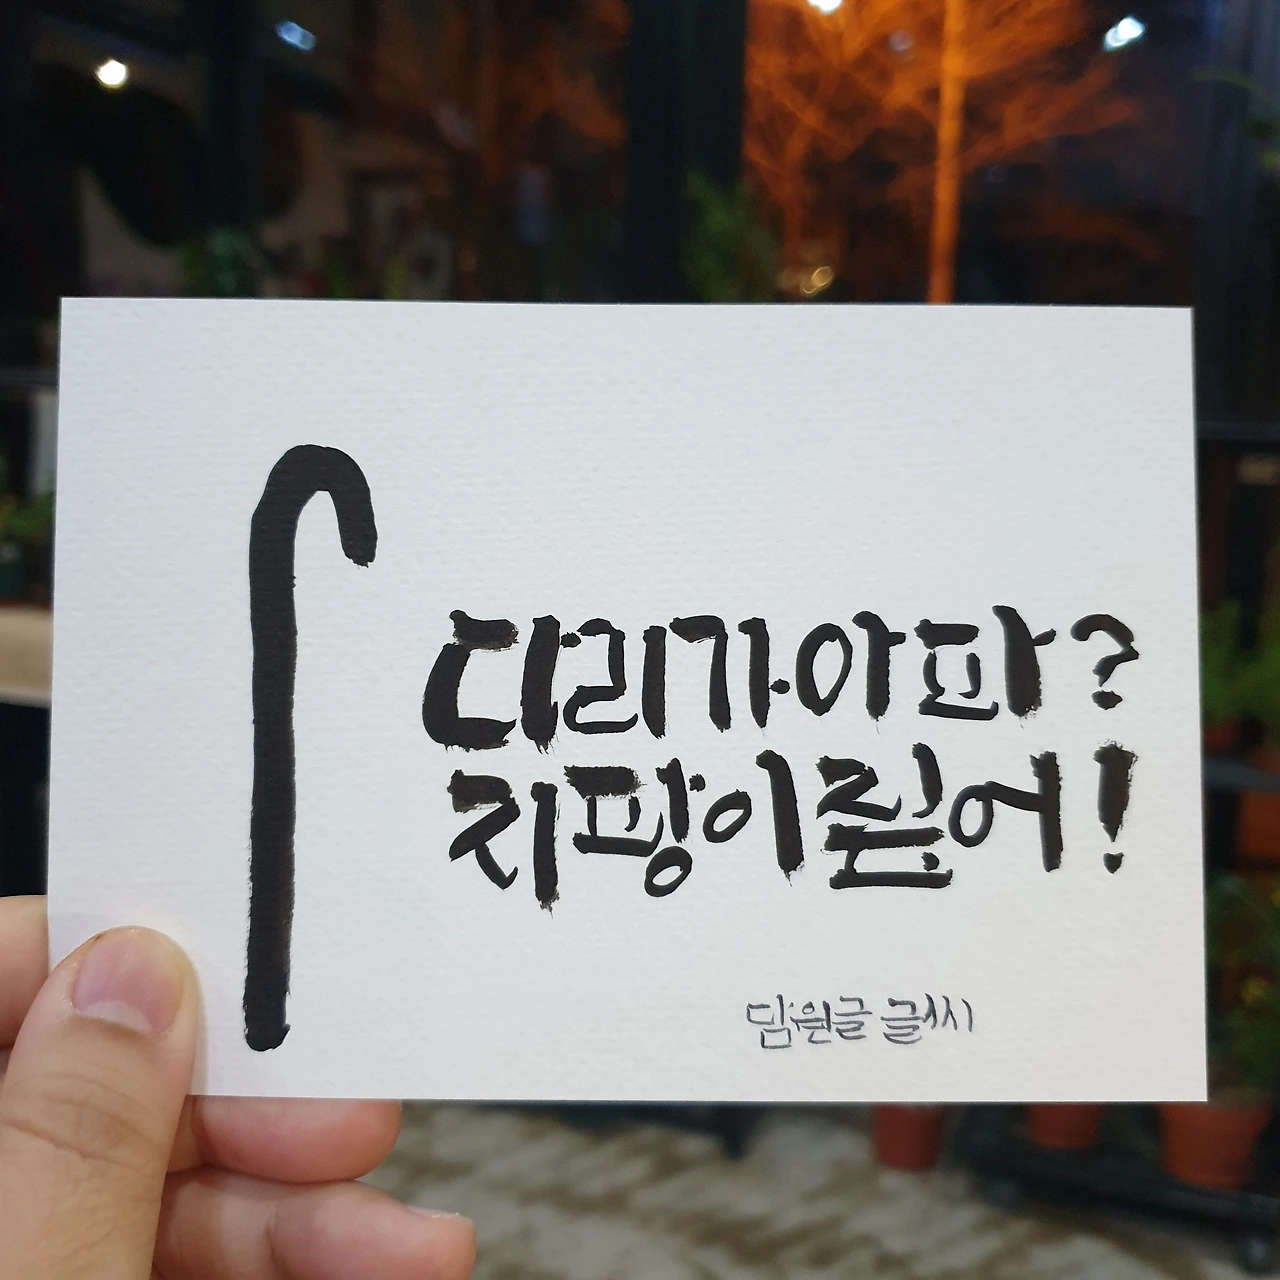 다리가아파?
지팡이짚어!
담원글 글씨